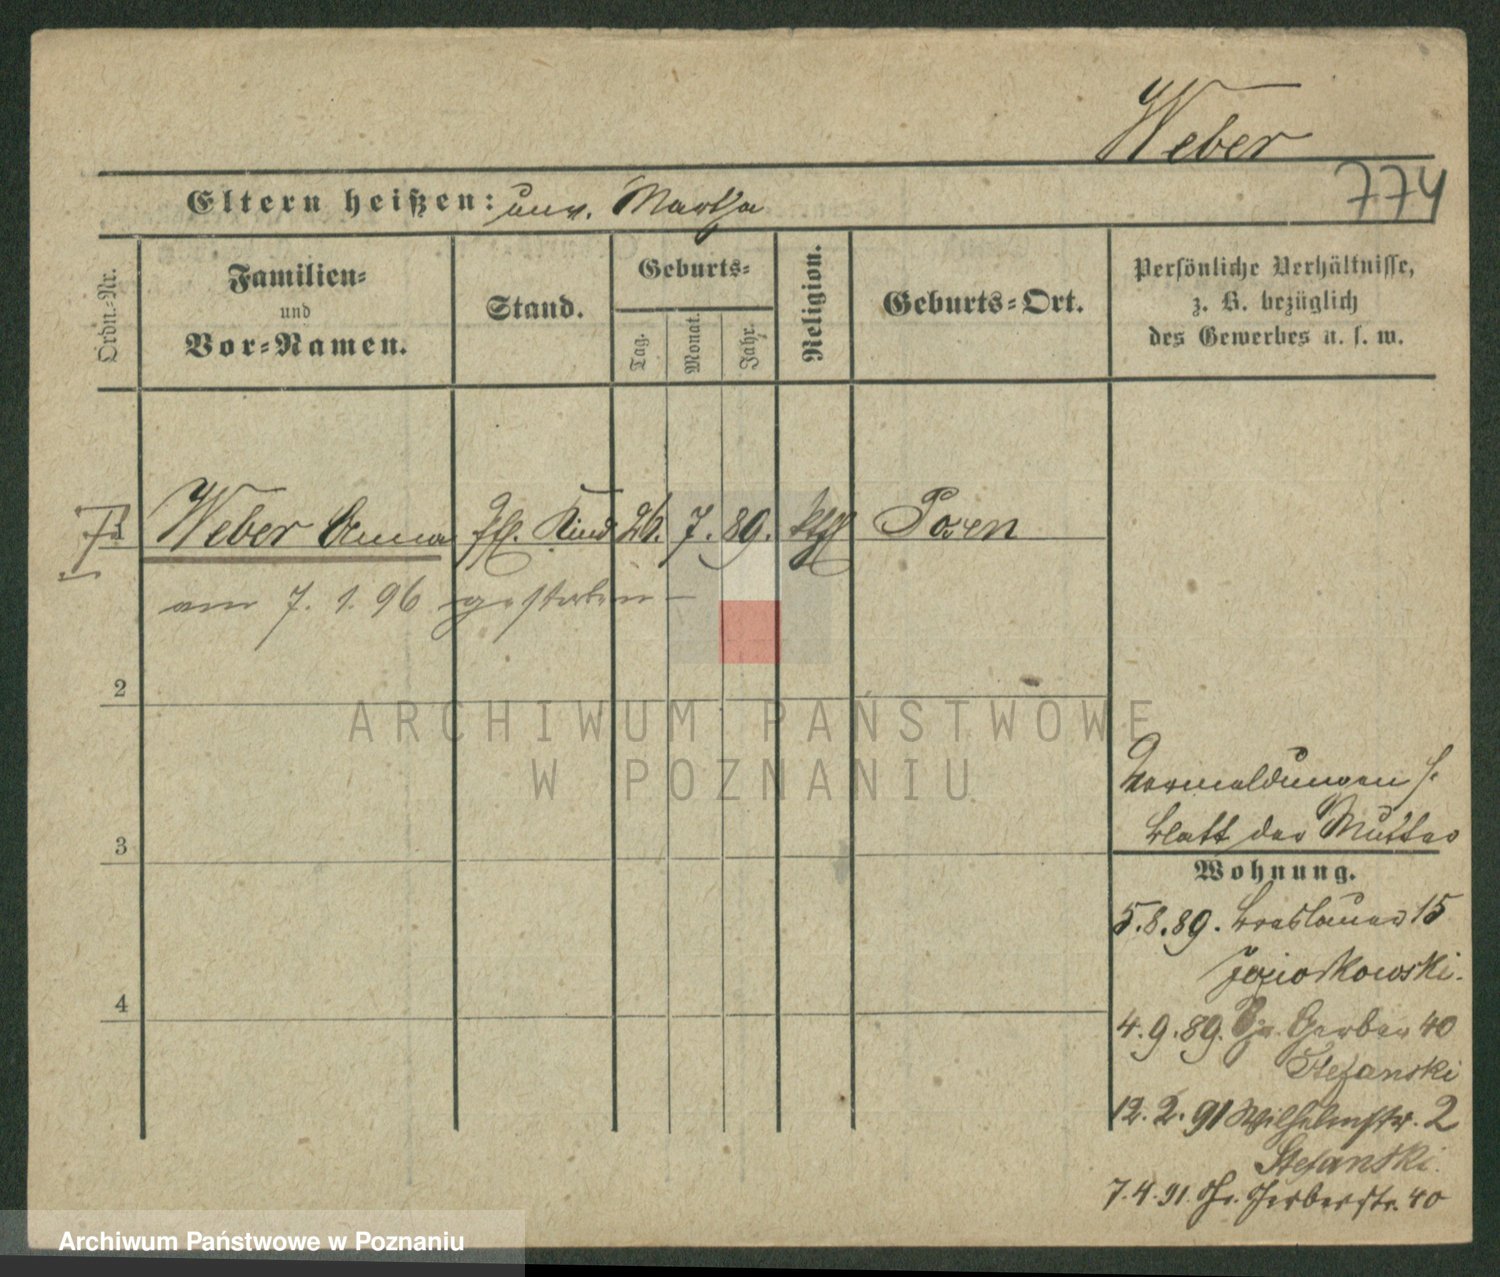 Weber
774
Eltern heißen: unv. Martha
Ordn.-Nr.
Familien-
und
Vor-Namen.
Stand.
Geburts-
Tag.
Monat.
Jahr.
Religion.
Geburts-Ort.
Persönliche Verhältnisse,
z. B. bezüglich
des Gewerbes u. s. w.
Weber Anna Kind 26. 7. 89. kthl Posen
am 7. 1. 96 gestorben
2
3
4
Vormeldungen s.
Blatt der Mutter
Wohnung.
5.8.89. Breslauer 15
4.9.89. Gr. Gerber 40
Stefanski
12.2.91 Wilhelmstr. 2
Stefanski.
7.4.91 Gr. Gerberstr. 40
ARCHIWUM PAŃSTWOWE
W POZNANIU
Archiwum Państwowe w Poznaniu